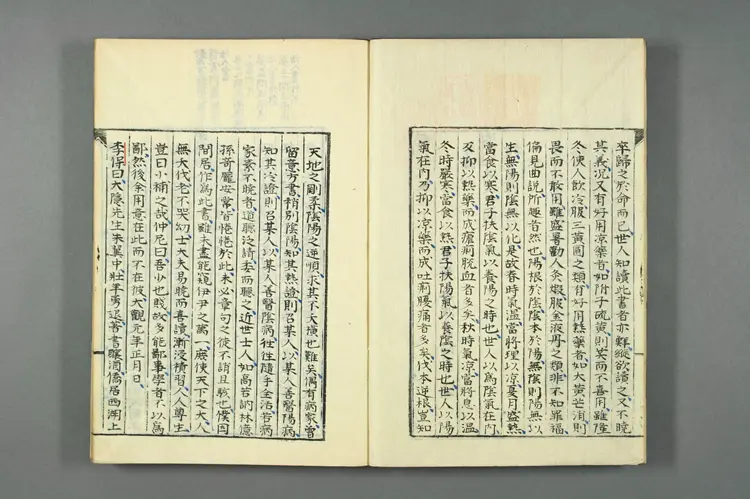 卒歸之於命而已世人知讀此書者亦鮮縱欲讀之又不曉
其義況又有好用凉藥者如附子硫黃則笑而不喜用雖隆
冬使人飲冷服三黃圓之類有好用熱藥者如大黃芒消則
畏而不敢用雖盛暑勸人灸煅服金液丹之類非不知罪福
偏見曲說所趣者然也陽根於陰陰本於陽無陰則陽無以
生無陽則陰無以化是故春時氣溫當將理以凉夏月盛熱
當食以寒君子扶陰氣以養陽之時也世人以為陰氣在內
反抑以熱藥而成瘧痢脫血者多矣秋時氣凉當將息以溫
冬時嚴寒當食以熱君子扶陽氣以養陰之時也世人以陽
氣在內乃抑以凉藥而成吐痢腹痛者多矣伐本逆根豈知
天地之剛柔陰陽之逆順求其不夭橫也難矣偶有病家曾
留意方書稍別陰陽知其熱證則召某人以某人善醫陽病
知其冷證則召某人以某人善醫陰病往往隨手全活若病
家素不曉者道聽泛請委而聽之近世士人如高若訥林億
孫奇龐安常皆惓惓於此未必章句之徒不誚且駭也僕因
閒居作為此書雖未盡能窺伊尹之萬一庶使天下之大人
無夭伐老不哭幼士大夫易曉而喜讀漸浸積習人人尊生
豈曰小補之哉仲尼曰吾少也賤故多能鄙事學者不以為
鄙然後余用意在此而不在彼大觀元年正月日
李保曰大隱先生朱翼中壯年勇退著書釀酒僑居西湖上